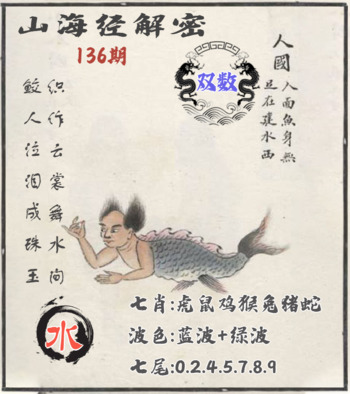 山海经解密
136期
双数
人國
人面魚身無
足在建水西
織作云裳舞水间
鮫人位泪成珠玉
水
七肖:虎鼠鸡猴兔猪蛇
波色:蓝波+绿波
七尾:0.2.4.5.7.8.9